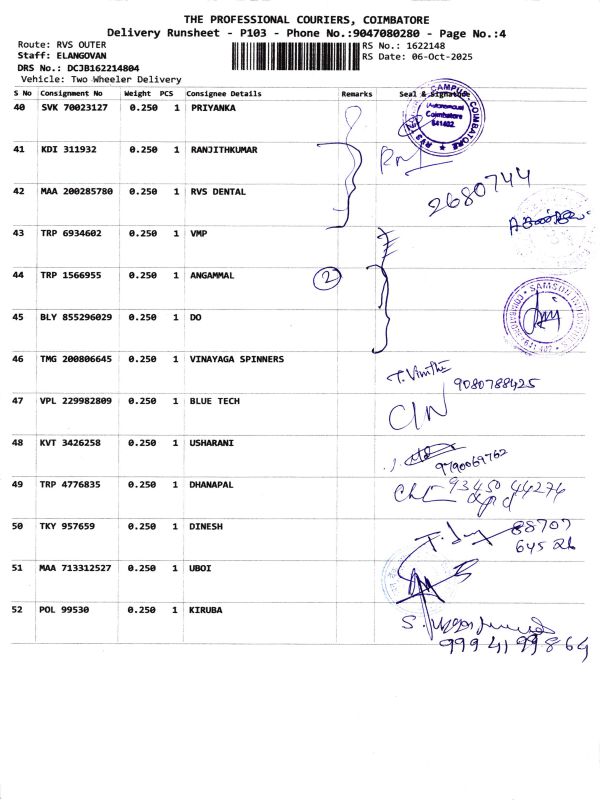 THE PROFESSIONAL COURIERS, COIMBATORE
Delivery Runsheet - P103 - Phone No.:9047080280 - Page No.:4
Route: RVS OUTER RS No.: 1622148
Staff: ELANGOVAN RS Date: 06-Oct-2025
DRS No.: DCJB162214804
Vehicle: Two Wheeler Delivery
S No Consignment No Weight PCS Consignee Details Remarks Seal & Signature
40 SVK 70023127 0.250 1 PRIYANKA
CAMPUS COIMBATORE
(Autonomous)
Coimbatore
641402.
41 KDI 311932 0.250 1 RANJITHKUMAR
42 MAA 200285780 0.250 1 RVS DENTAL 2680744
43 TRP 6934602 0.250 1 VMP
44 TRP 1566955 0.250 1 ANGAMMAL 2
45 BLY 855296029 0.250 1 DO
46 TMG 200806645 0.250 1 VINAYAGA SPINNERS
9080788425
47 VPL 229982809 0.250 1 BLUE TECH
48 KVT 3426258 0.250 1 USHARANI
9790069762
49 TRP 4776835 0.250 1 DHANAPAL 93450 44274
50 TKY 957659 0.250 1 DINESH 88707
645 26
51 MAA 713312527 0.250 1 UBOI
52 POL 99530 0.250 1 KIRUBA
9994199864